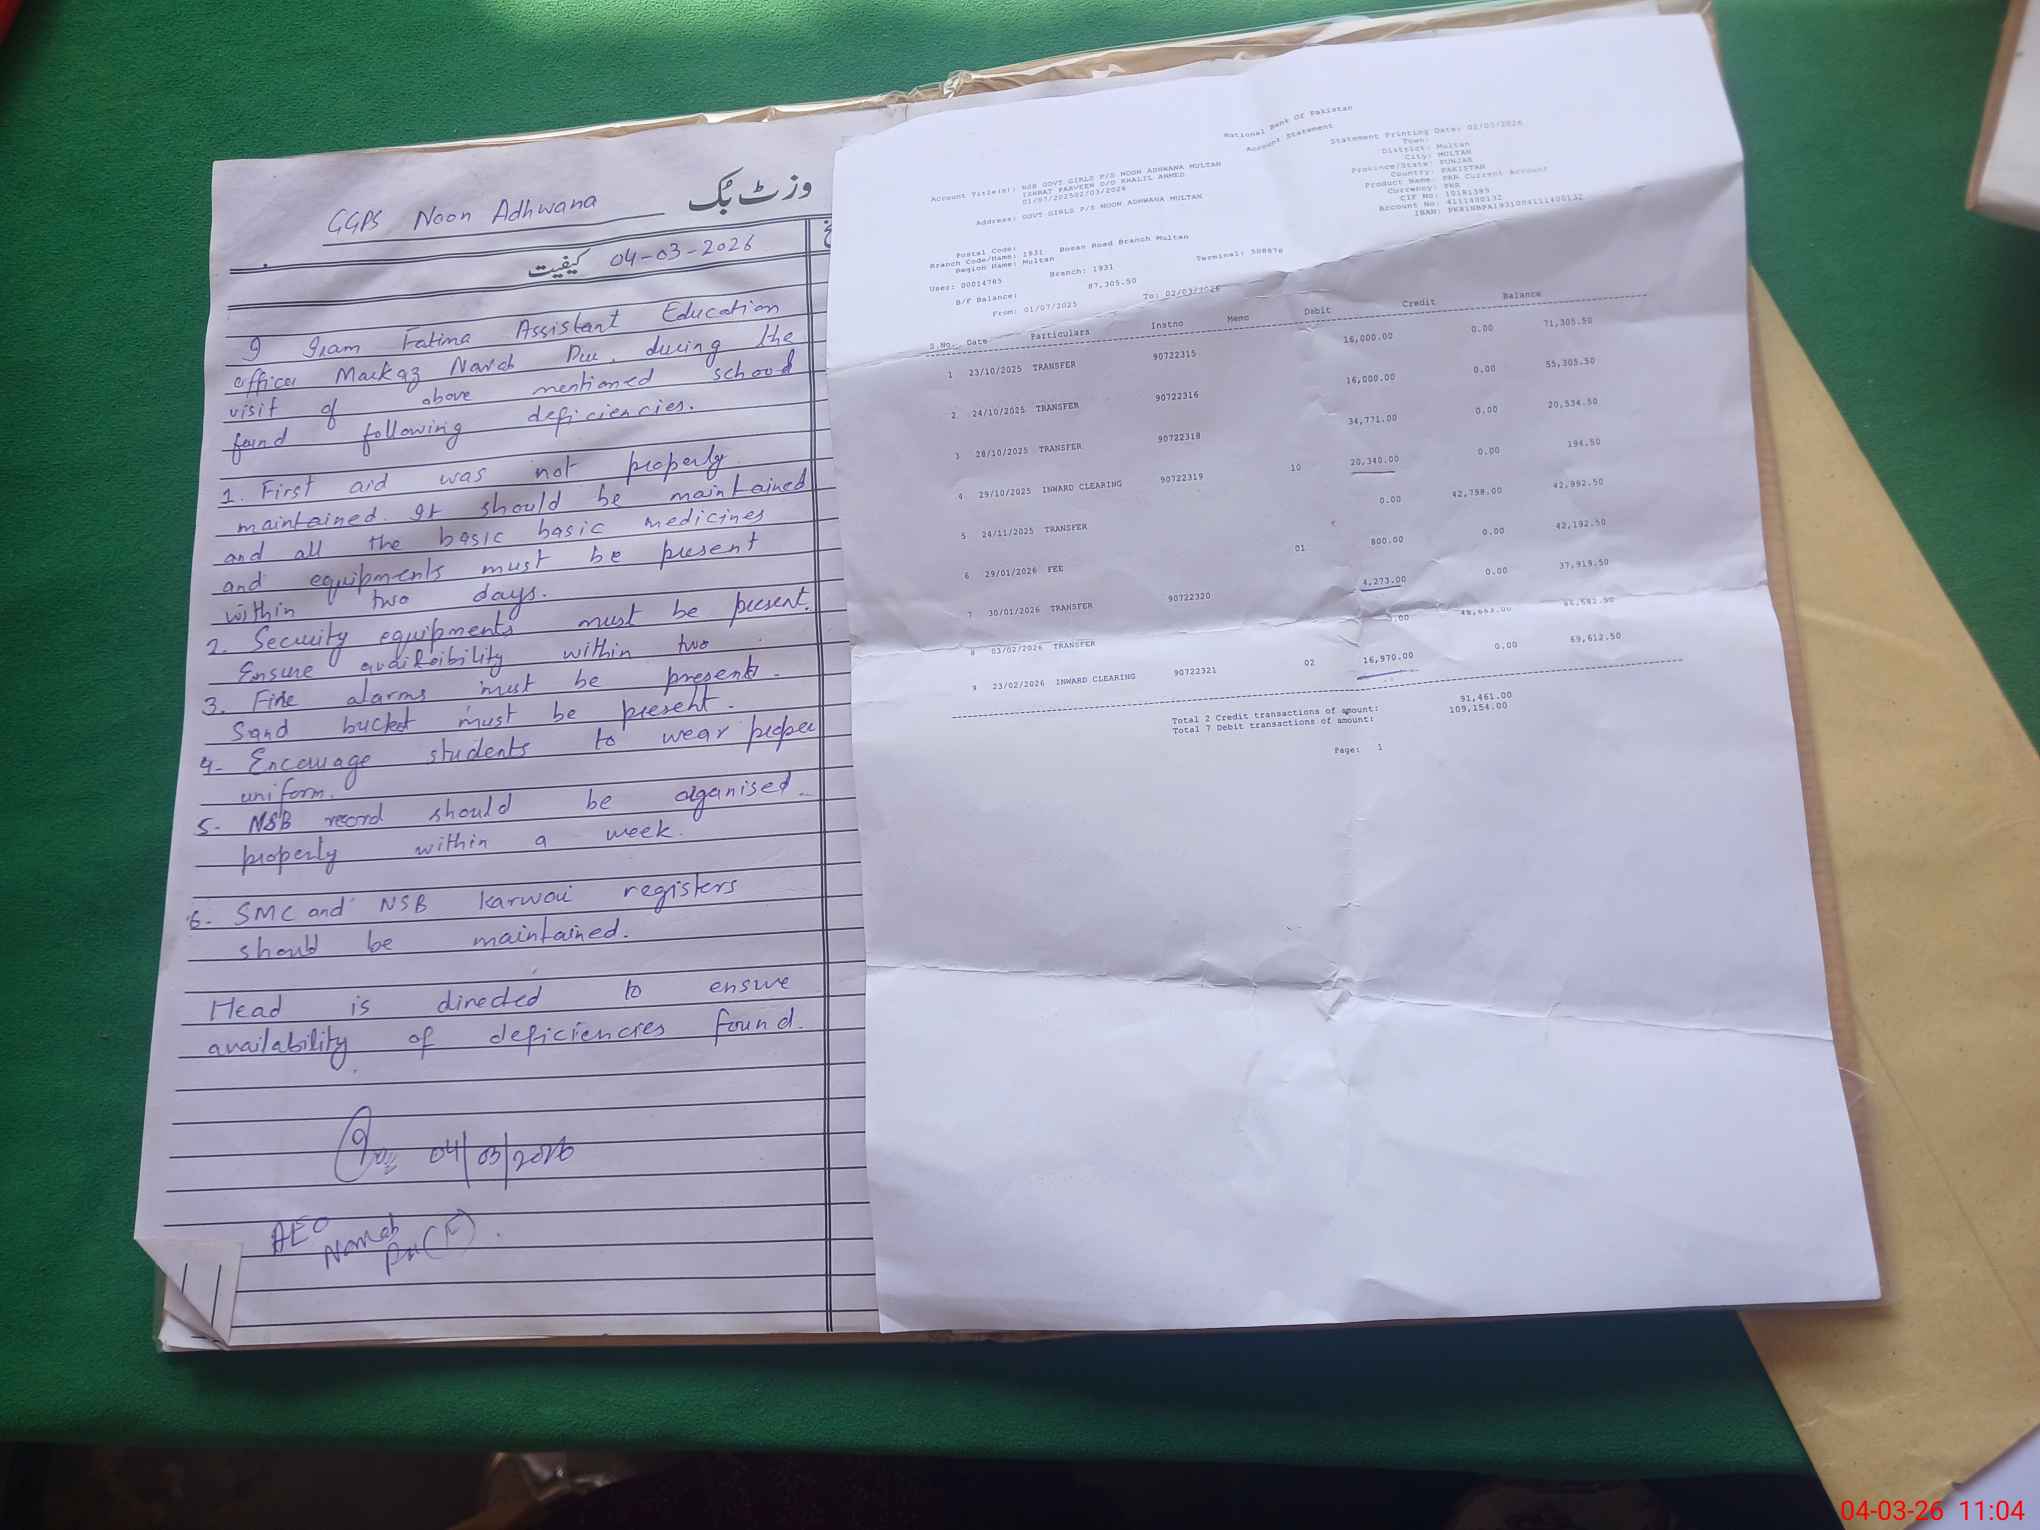 GGPS Noon Adhwana
وزٹ بُک
کیفیت 04-03-2026
I Iram Fatima Assistant Education
officer Markaz Narab Pur, during the
visit of above mentioned school
found following deficiencies.
1. First aid was not properly
maintained. It should be maintained
and all the basic basic medicines
and equipments must be present
within two days.
2. Security equipments must be present.
Ensure availability within two
3. Fire alarms must be present.
Sand bucket must be present.
4- Encourage students to wear proper
uniform.
5- NSB record should be organised
properly within a week.
6. SMC and NSB karwai registers
should be maintained.
Head is directed to ensure
availability of deficiencies found.
04/03/2026
AEO
(F)
National Bank Of Pakistan
Account Statement
Statement Printing Date: 02/03/2026
Town:
District: Multan
City: MULTAN
Province/State: PUNJAB
Country: PAKISTAN
Product Name: PKR Current Account
Currency: PKR
CIF No: 10181395
Account No: 4111400132
IBAN:
Account Title(s): NSB GOVT GIRLS P/S NOON ADHWANA MULTAN
ISHRAT PARVEEN D/O KHALIL AHMED
01/07/202502/03/2026
Address: GOVT GIRLS P/S NOON ADHWANA MULTAN
Postal Code:
Branch Code/Name: 1931 Bosan Road Branch Multan
Region Name: Multan
User: 00014765 Branch: 1931 Terminal:
B/F Balance: 87,305.50
From: 01/07/2025 To: 02/03/2026
S.No. Date Particulars Instno Memo Debit Credit Balance
1 23/10/2025 TRANSFER 90722315 16,000.00 0.00 71,305.50
2 24/10/2025 TRANSFER 90722316 16,000.00 0.00 55,305.50
3 28/10/2025 TRANSFER 90722318 34,771.00 0.00 20,534.50
4 29/10/2025 INWARD CLEARING 90722319 10 20,340.00 0.00 194.50
5 24/11/2025 TRANSFER 0.00 42,798.00 42,992.50
6 29/01/2026 FEE 01 800.00 0.00 42,192.50
7 30/01/2026 TRANSFER 90722320 4,273.00 0.00 37,919.50
8 03/02/2026 TRANSFER 0.00 48,663.00 86,582.50
9 23/02/2026 INWARD CLEARING 90722321 02 16,970.00 0.00 69,612.50
Total 2 Credit transactions of amount: 91,461.00
Total 7 Debit transactions of amount: 109,154.00
Page: 1
04-03-26 11:04